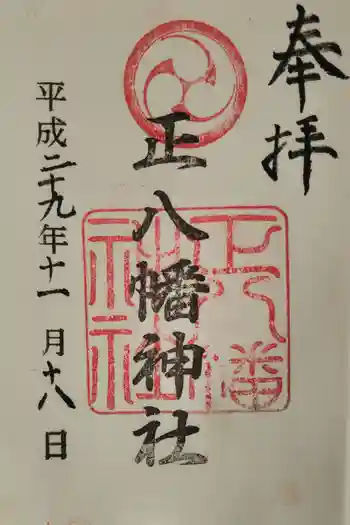 奉拝
正八幡神社
平成二十九年十一月十八日
正八幡神社